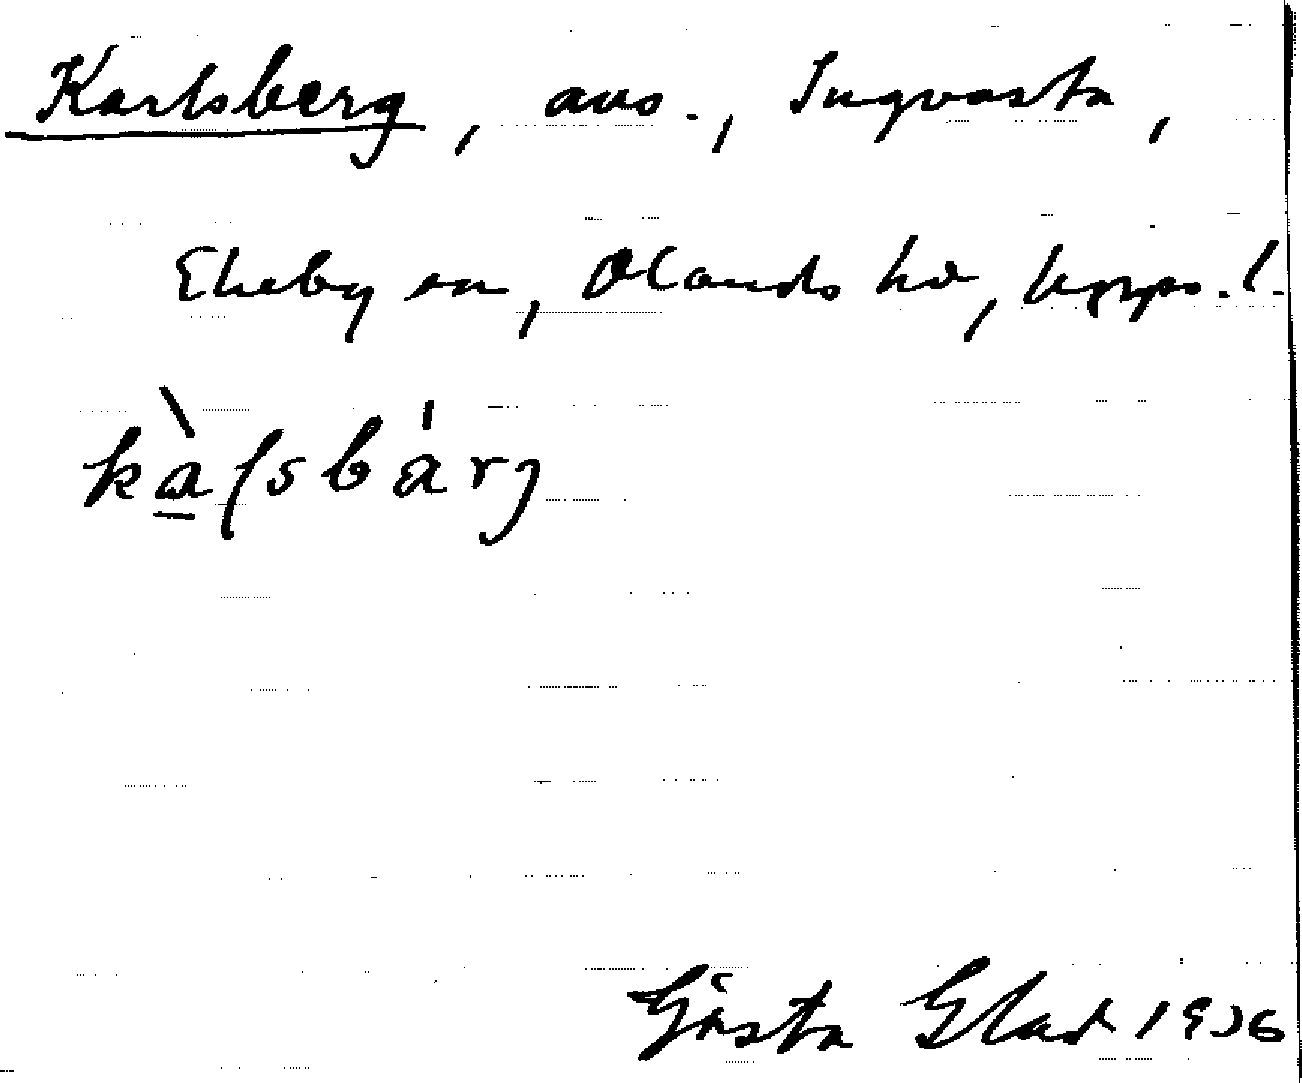 Karlsberg, avs., Ingvasta,
Ekeby sn, Olands hd, Upps. l.
kàlsbár
Gösta Glad 1936